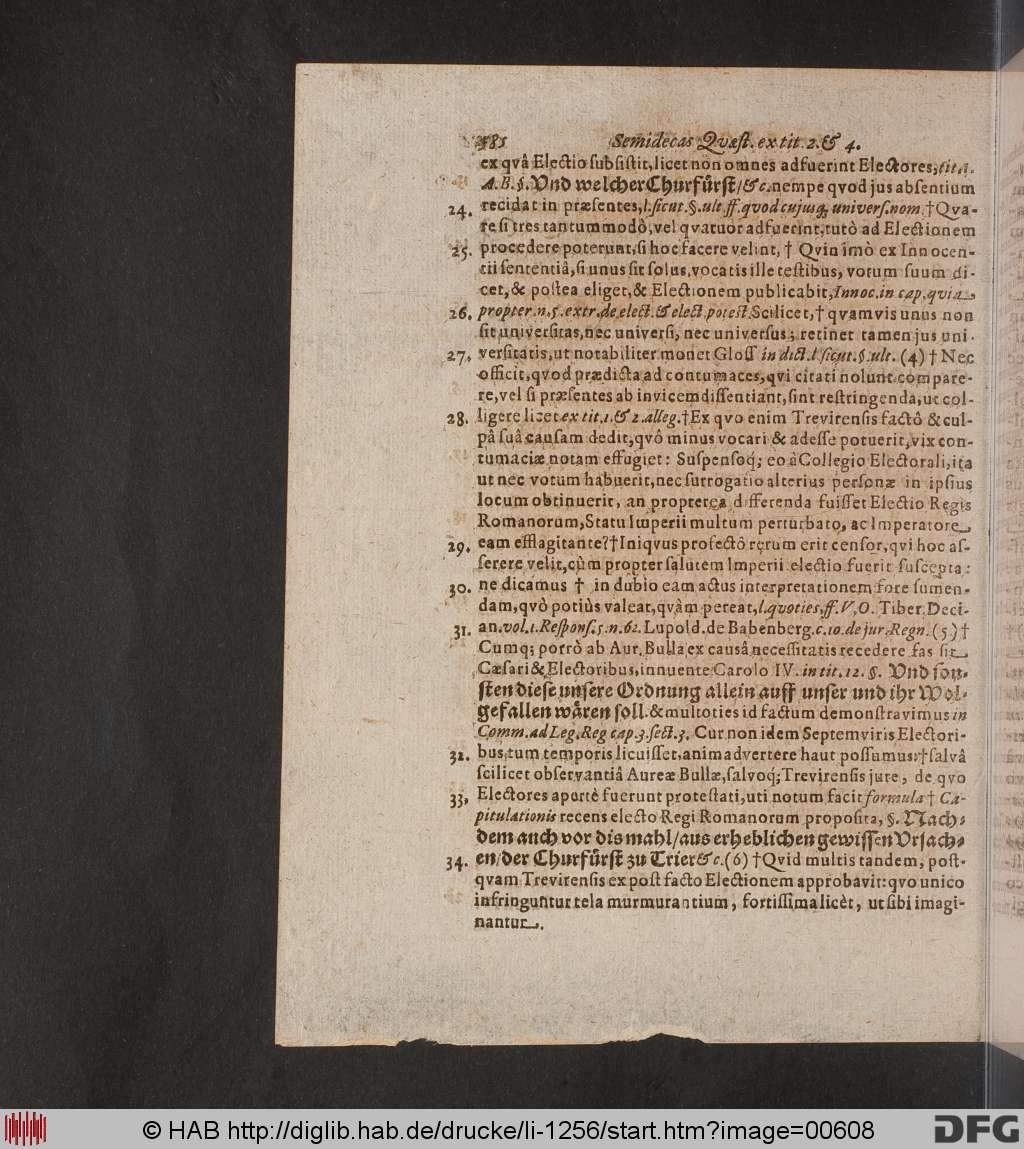 581 Semidecas Quæst. ex tit. 2. & 4.
ex qvâ Electio subsistit, licet non omnes adfuerint Electores, tit. 1.
A.B. §. Vnd welcher Churfürst / &c. nempe qvod jus absentium
24. recidat in præsentes, l. sicut. §. ult. ff. quod cujusq; univers. nom. † Qva-
re si tres tantummodò, vel qvatuor adfuerint, tutò ad Electionem
25. procedere poterunt, si hoc facere velint, † Qvin imò ex Innocen-
tii sententiâ, si unus sit solus, vocatis ille testibus, votum suum di-
cet, & postea eliget, & Electionem publicabit, Innoc. in cap. qvia
26. propter. n. 5. extr. de elect. & elect. potest. Scilicet, † qvamvis unus non
sit universitas, nec universi, nec universus; retinet tamen jus uni-
27. versitatis, ut notabiliter monet Gloss. in dict. l. sicut. §. ult. (4) † Nec
officit, qvod prædicta ad contumaces, qvi citati nolunt compare-
re, vel si præsentes ab invicem dissentiant, sint restringenda, ut col-
28. ligere licet ex tit. 1. & 2. alleg. † Ex qvo enim Trevirensis factô & cul-
pâ suâ causam dedit, qvô minus vocari & adesse potuerit, vix con-
tumaciæ notam effugiet: Suspensoq; eo à Collegio Electorali, ita
ut nec votum habuerit, nec surrogatio alterius personæ in ipsius
locum obtinuerit, an propterea differenda fuisset Electio Regis
Romanorum, Statu Imperii multum perturbato, ac Imperatore
29. eam efflagitante? † Iniqvus profectô rerum erit censor, qvi hoc as-
serere velit, cùm propter salutem Imperii electio fuerit suscepta:
30. ne dicamus † in dubio eam actus interpretationem fore sumen-
dam, qvò potiùs valeat, qvàm pereat, l. quoties, ff. V, O. Tiber. Deci-
31. an. vol. 1. Respons. 5. n. 62. Lupold. de Babenberg. c. 10. de jur. Regn. (5) †
Cumq; porrò ab Aur. Bulla ex causâ necessitatis recedere fas sit
Cæsari & Electoribus, innuente Carolo IV. in tit. 12. §. Vnd son-
sten diese unsere Ordnung allein auff unser und ihr Wol-
gefallen wären soll. & multoties id factum demonstravimus in
Comm. ad Leg. Reg cap. 3. sect. 3. Cur non idem Septemviris Electori-
32. bus, tum temporis licuisset, animadvertere haut possumus: † salvâ
scilicet observantiâ Aureæ Bullæ, salvoq; Trevirensis jure, de qvo
33. Electores apertè fuerunt protestati, uti notum facit formula † Ca-
pitulationis recens electo Regi Romanorum proposita, §. Nach-
dem auch vor dismahl / aus erheblichen gewissen Vrsach-
34. en / der Churfürst zu Trier &c. (6) † Qvid multis tandem, post-
qvam Trevirensis ex post facto Electionem approbavit: qvo unico
infringuntur tela murmurantium, fortissima licèt, ut sibi imagi-
nantur.
© HAB http://diglib.hab.de/drucke/li-1256/start.htm?image=00608
DFG